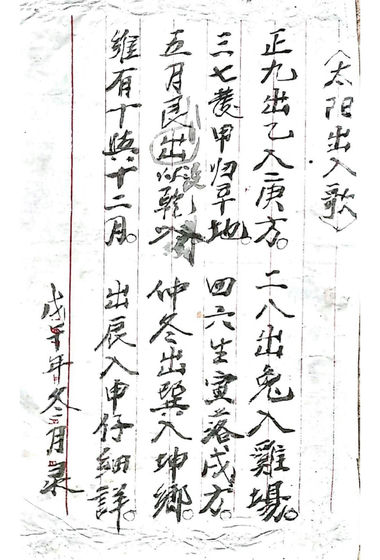 〈太阳出入歌〉
正九出乙入庚方。二八出兔入雞場。
三七發甲归辛地。四六生寅落戌方。
五月艮出以没乾 仲冬出巽入坤鄉。
維有十與十二月。出辰入申仔細詳。
戊年冬月录